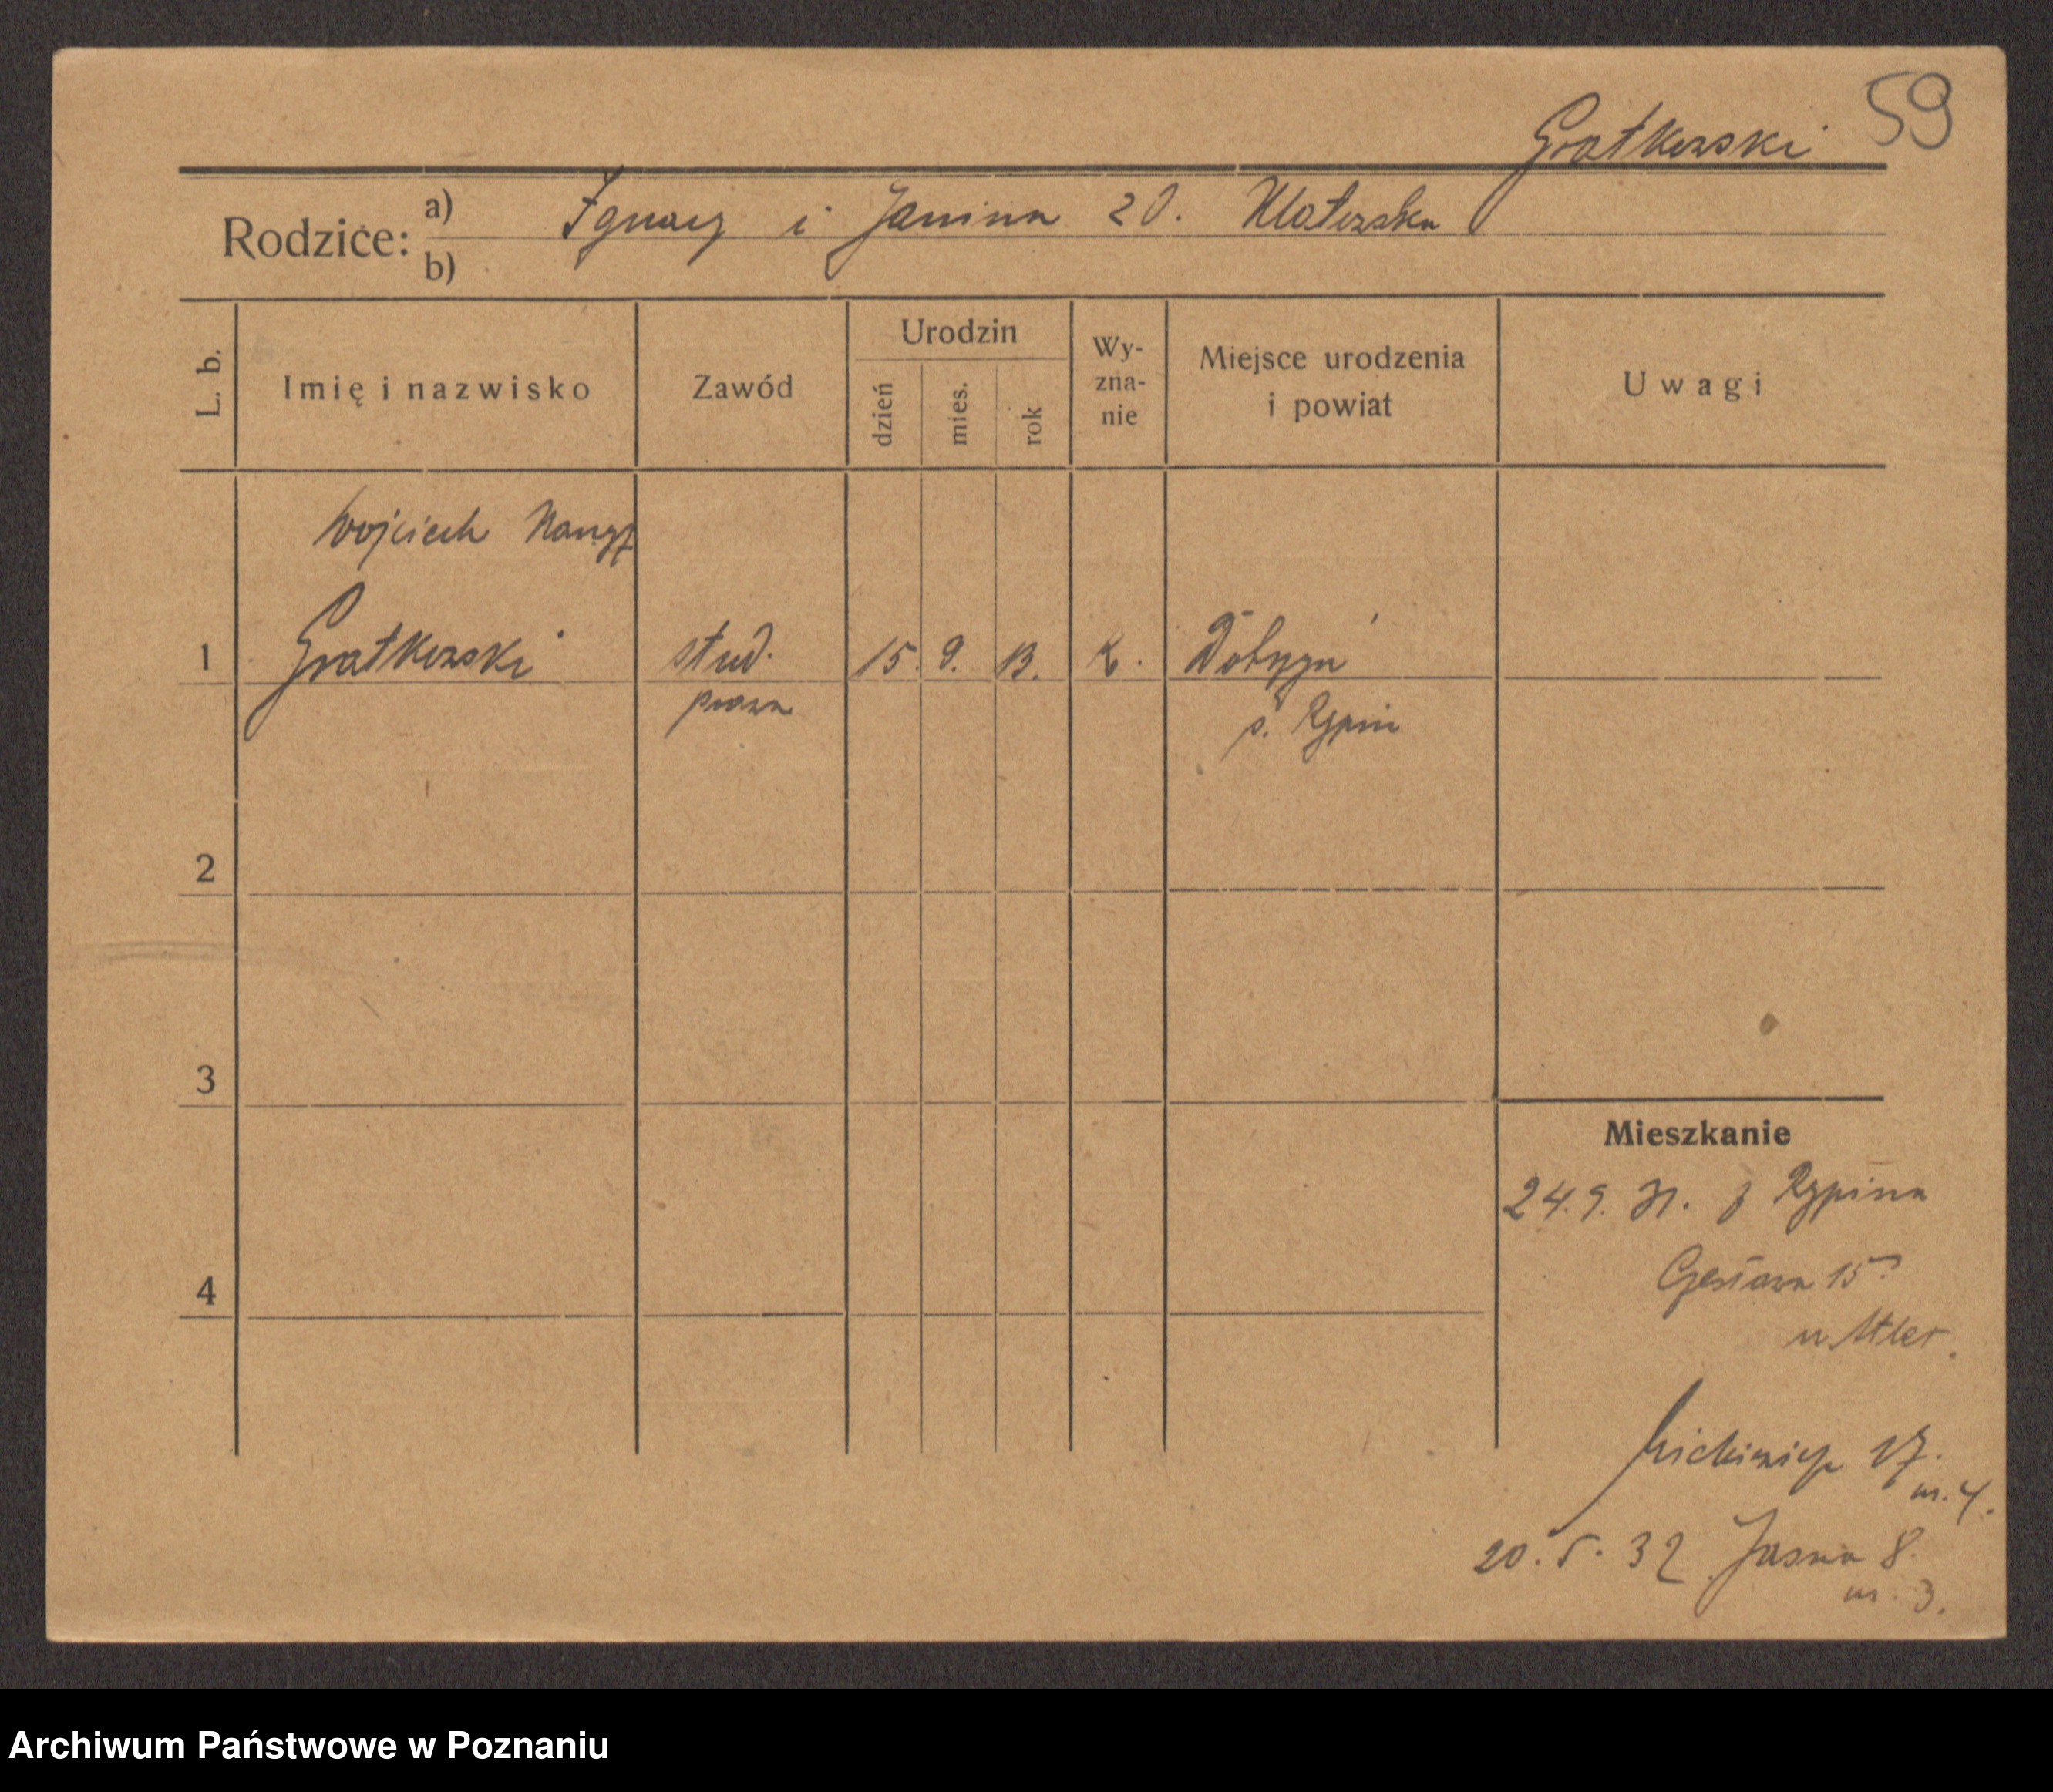 59
Gratkowski
Rodzice: a) Ignacy i Janina zd.
b)
L. b. Imię i nazwisko Zawód Urodzin dzień mies. rok Wy-zna-nie Miejsce urodzenia i powiat Uwagi
Wojciech
1 Gratkowski stud. 15. 9. 13. k. Dobrzyń
prawa p. Rypin
2
3
Mieszkanie
24. 9. 31. z Rypina
4 Czesława 15
u
Mickiewicza 17.
m. 4.
20. 5. 32 Jasna 8.
m. 3.
Archiwum Państwowe w Poznaniu